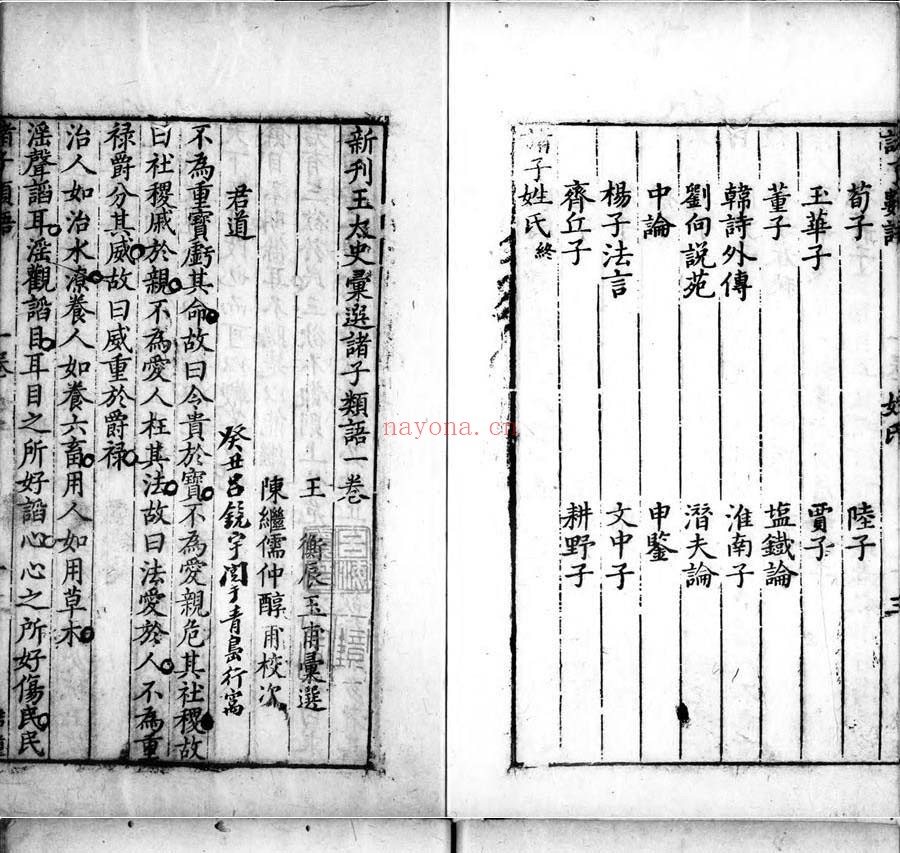 荀子 陸子
玉華子 賈子
董子 塩鐵論
韓詩外傳 淮南子
劉向説苑 潛夫論
中論 申鑒
楊子法言 文中子
齊丘子 耕野子
諸子姓氏終
姓氏
三
nayona.cn
新刊王太史彙選諸子類語一卷
王 衡辰玉甫彙選
陳繼儒仲醇甫校次
癸丑呂鏡宇閲于青島行窩
君道
不為重寶虧其命故曰令貴於寶不為愛親危其社稷故
曰社稷戚於親不為愛人枉其法故曰法愛於人不為重
禄爵分其威故曰威重於爵禄
治人如治水潦養人如養六畜用人如用草木
淫聲謟耳淫觀謟目耳目之所好謟心心之所好傷民民
諸子類語
一卷